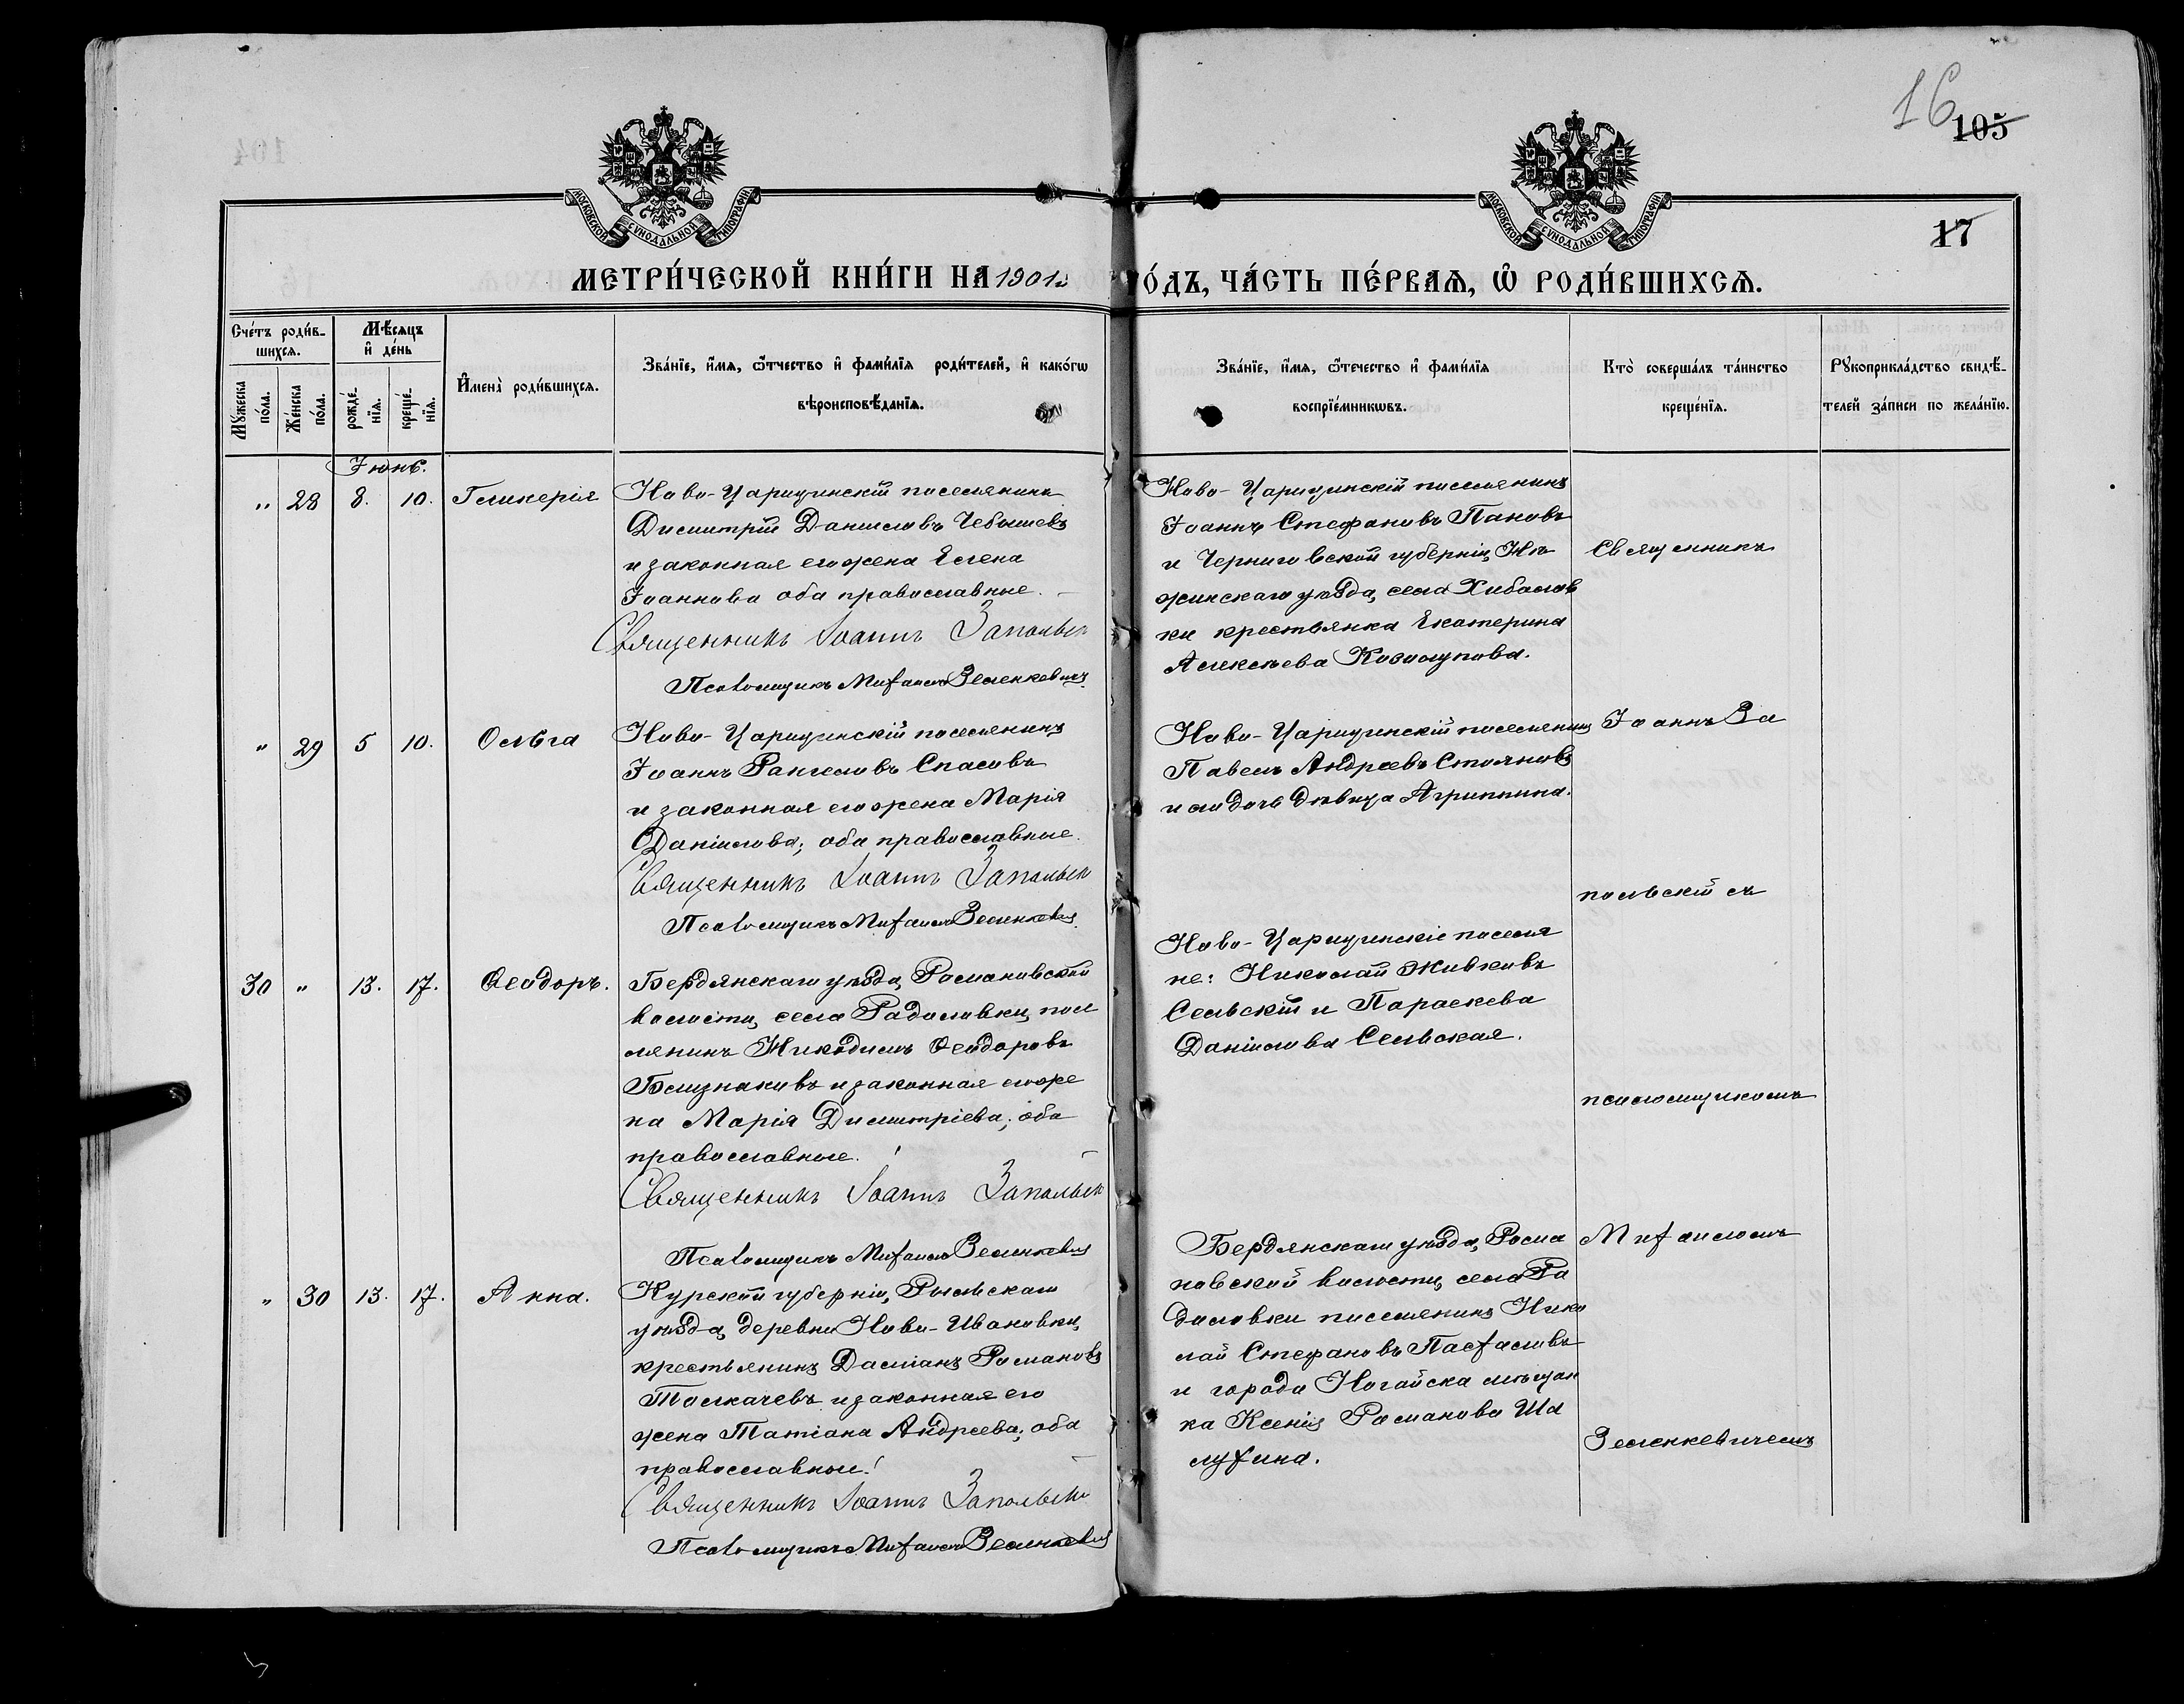 16
105
17
МОСКОВСКОЙ СУНОДАЛЬНОЙ ТИПОГРАФІИ
МОСКОВСКОЙ СУНОДАЛЬНОЙ ТИПОГРАФІИ
МЕТРИ́ЧЕСКОЙ КНИ́ГИ НА 1901 О́ДЪ, ЧА́СТЬ ПЕ́РВАѦ, Ѽ РОДИ́ВШИХСѦ.
Сче́тъ роди́в-
шихсѧ.
Мꙋ́жеска по́ла.
Же́нска по́ла.
Мѣ́сѧцъ и҆ де́нь
рожде́-
нїѧ.
креще́-
нїѧ.
И҆мена̀ роди́вшихсѧ.
Зва́нїе, и҆́мѧ, ѻ҆́тчество и҆ фами́лїѧ роди́телей, и҆ како́гѡ
вѣроисповѣ́данїѧ.
Зва́нїе, и҆́мѧ, ѻ҆те́чество и҆ фами́лїѧ
воспрїе́мникѡвъ.
Кто̀ соверша́лъ та́инство
креще́нїѧ.
Рꙋкоприкла́дство свидѣ́-
телей за́писи по жела́нїю.
Іюнь.
" 28 8. 10. Гликерія
Ново-Царицинскій поселянинъ
Димитрій Даниловъ Чебышевъ
и законная его жена Елена
Іоаннова оба православные.
Священникъ Іоаннъ Запольск
Псаломщикъ Михаилъ Зеленкевичъ.
Ново-Царицинскій поселянинъ
Іоаннъ Стефановъ Пановъ
и Черниговской губерніи, Нѣ
жинскаго уѣзда, села Хибалов
ки крестьянка Екатерина
Алексѣева Козолупова.
Священникъ
" 29 5 10. Ольга
Ново-Царицинскій поселянинъ
Іоаннъ Рангеловъ Спасовъ
и законная его жена Марія
Даніилова; оба православные.
Священникъ Іоаннъ Запольск
Псаломщикъ Михаилъ Зеленкевич
Ново-Царицинскій поселянинъ
Павелъ Андреевъ Стояновъ
и его дочь дѣвица Агриппина.
Іоаннъ За
польскій съ
30 " 13. 17. Ѳеодоръ.
Бердянскаго уѣзда, Романовской
волости, села Радоловки, посе
лянинъ Никодимъ Ѳеодоровъ
Близнаковъ и законная его же
на Марія Димитріева; оба
православные.
Священникъ Іоаннъ Запольск
Псаломщикъ Михаилъ Зеленкевич
Ново-Царицинскіе поселя
не: Николай Живковъ
Сельскій и Параскева
Даніилова Сельская.
псаломщикомъ
" 30 13. 17. Анна.
Курской губерніи, Рыльскаго
уѣзда, деревни Ново-Ивановки,
крестьянинъ Даміанъ Романовъ
Толкачевъ и законная его
жена Татіана Андреева; оба
православные.
Священникъ Іоаннъ Запольск
Псаломщикъ Михаилъ Зеленкевич
Бердянскаго уѣзда, Рома
новской волости, села Ра
доловки поселянинъ Нико
лай Стефановъ Пасхаловъ
и города Ногайска мѣщан
ка Ксенія Романова Ша
лухина.
Михаиломъ
Зеленкевичемъ